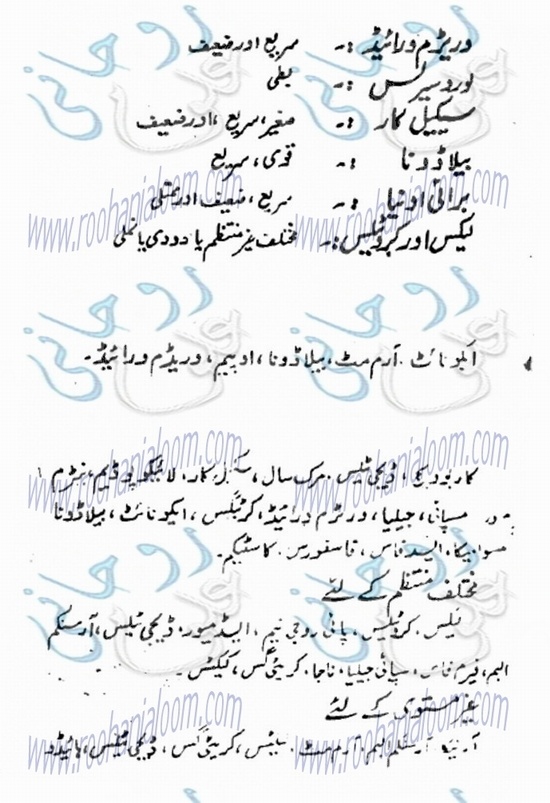 وریڑم ورائیڈ :۔ سریع اور ضعیف
لوروسیرس :۔ بطی
سیکیل کار :۔ صغیر، سریع، اور ضعیف
بیلاڈونا :۔ قوی، سریع
برائی اونیا :۔ سریع، ضعیف اور ممتلی
لیکس اور کروٹیلس :۔ مختلف غیر منتظم یا دودی یا نملی
ایکونائٹ، آرم مٹ، بیلاڈونا، اوپیم، وریڈم ورائیڈ۔
کاربوویج، ڈیجی ٹیلس، مرک سال، سیکیل کار، لائیکوپوڈیم، نیٹرم
میور، سپائی جیلیا، ورٹرم ورائیڈ، کریٹیگس، ایکونائٹ، بیلاڈونا
ایسڈ فاس، فاسفورس، کاسٹیکم۔
مختلف منتظم کے لئے
کروٹیلس، پائی روجی نیم، ایسڈ میور، ڈیجی ٹیلس، آرسنکم
البم، فیرم فاس، سپائی جیلیا، ناجا، کریٹی گس، کیکٹس۔
غیر مستوی کے لئے
آرنیکا، آرسنکم البم، آرم مٹ، کریٹی گس، ڈیجی ٹیلس، ہائیڈرو
www.roohanialoom.com
روحانی علوم